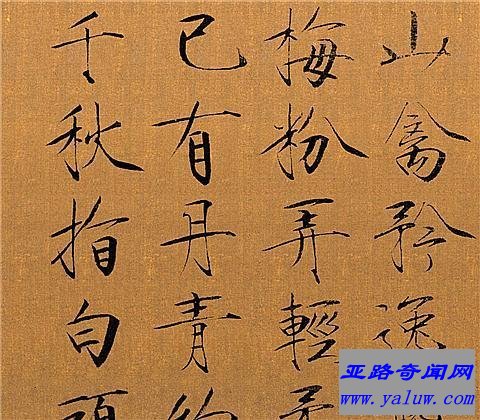 山禽矜逸
梅粉弄輕柔
已有丹青約
千秋指白頭
亚路奇闻网
www.yaluw.com